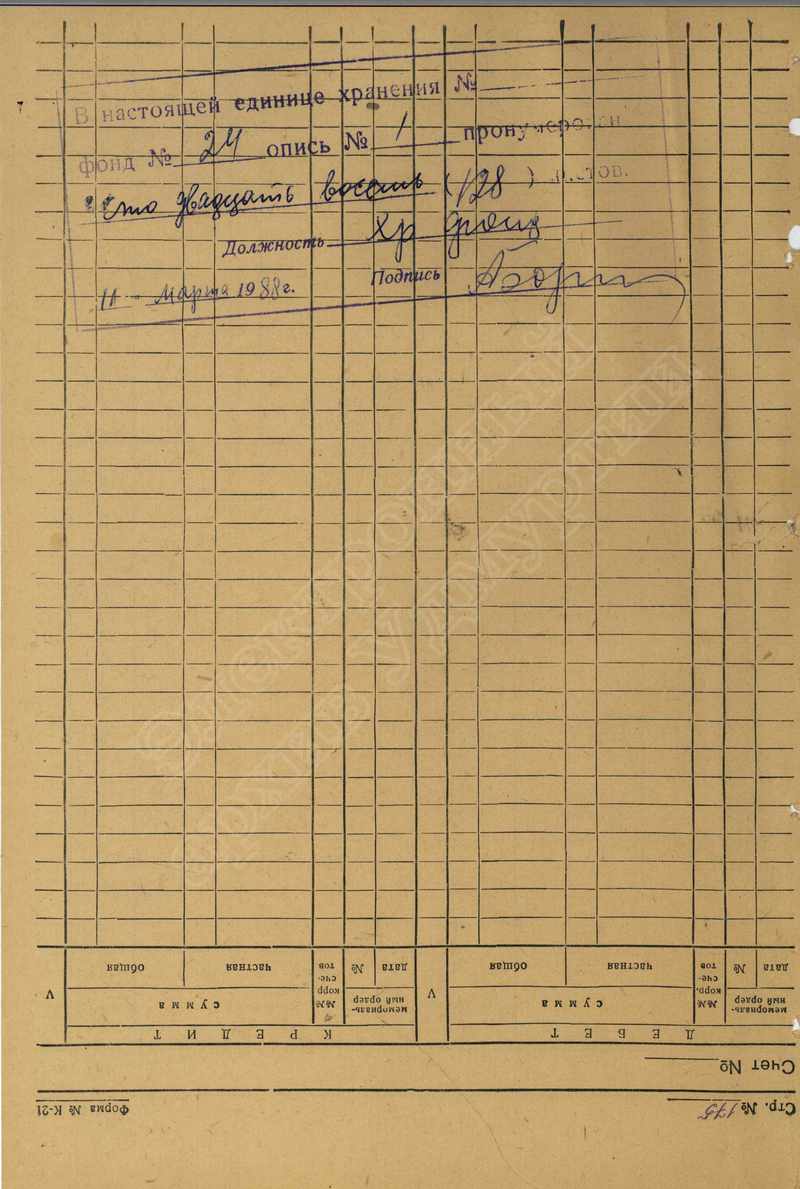 В настоящей единице хранения №
фонд № 24 опись № 1 пронумерован
Сто двадцать восемь (128) листов.
Должность Хр фонд
11 - марта 1988 г.
Подпись
Электронный
архив Удмуртии
Форма № К-21
Стр. № 175
Счет №
ДЕБЕТ
КРЕДИТ
мемориальный ордер
№№ корр. счетов
сумма
V
мемориальный ордер
№№ корр счетов
сумма
V
дата
№
частная
общая
дата
№
частная
общая